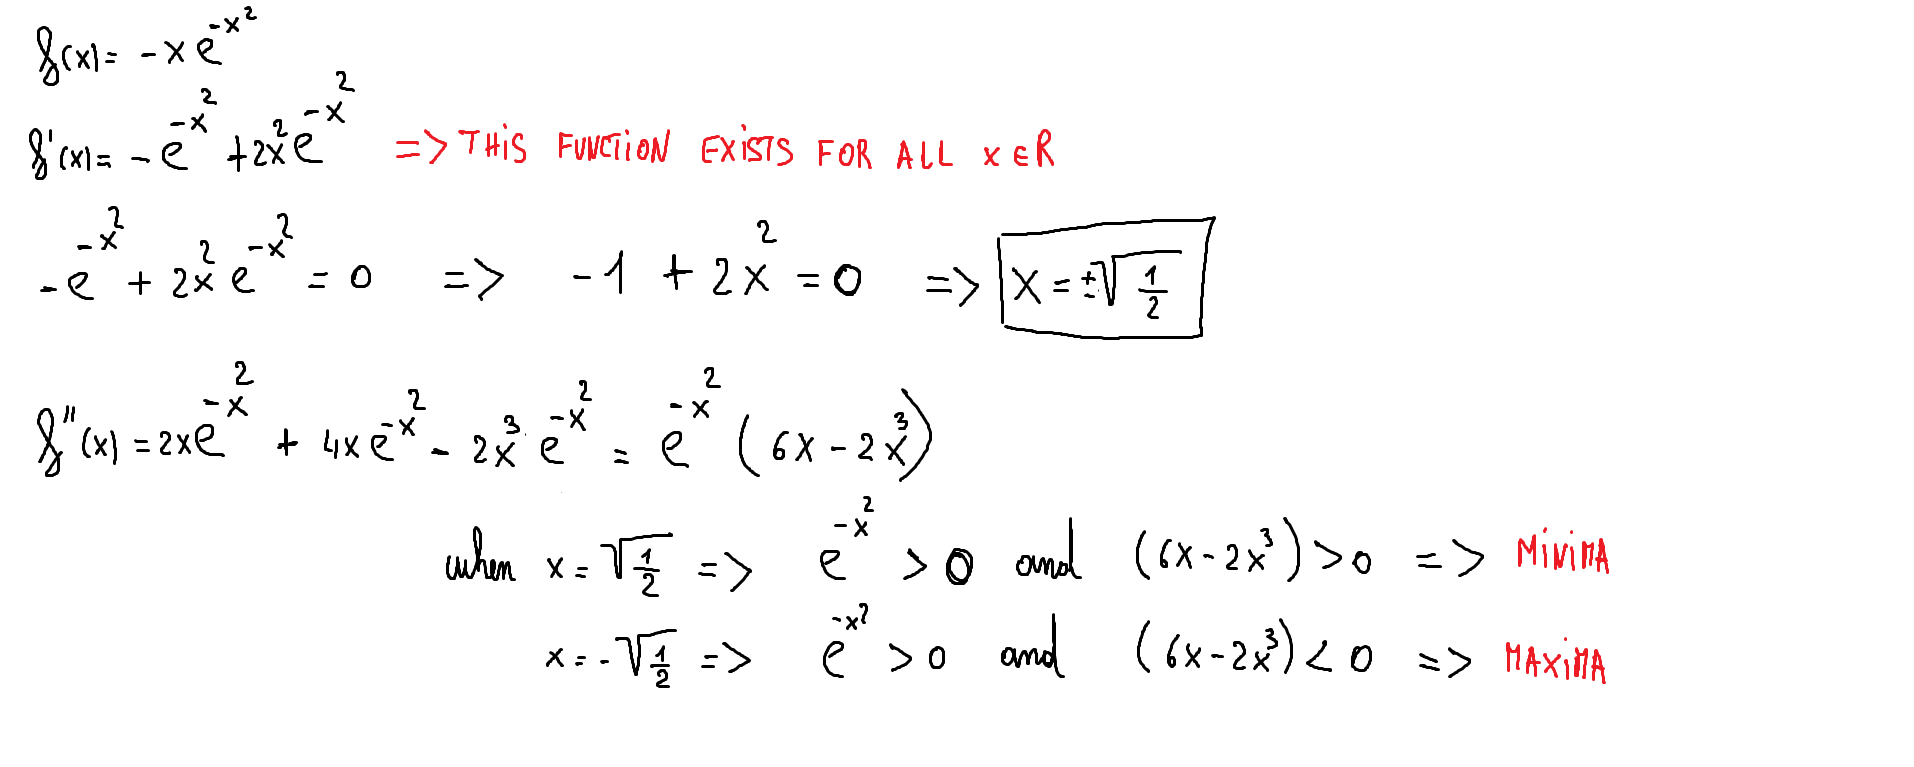 f(x) = -x e^{-x^2}
f'(x) = -e^{-x^2} + 2x^2 e^{-x^2} => THIS FUNCTION EXISTS FOR ALL x ∈ R
-e^{-x^2} + 2x^2 e^{-x^2} = 0 => -1 + 2x^2 = 0 => x = ±√(1/2)
f''(x) = 2x e^{-x^2} + 4x e^{-x^2} - 2x^3 e^{-x^2} = e^{-x^2} (6x - 2x^3)
when x = √(1/2) => e^{-x^2} > 0 and (6x - 2x^3) > 0 => MINIMA
x = -√(1/2) => e^{-x^2} > 0 and (6x - 2x^3) < 0 => MAXIMA